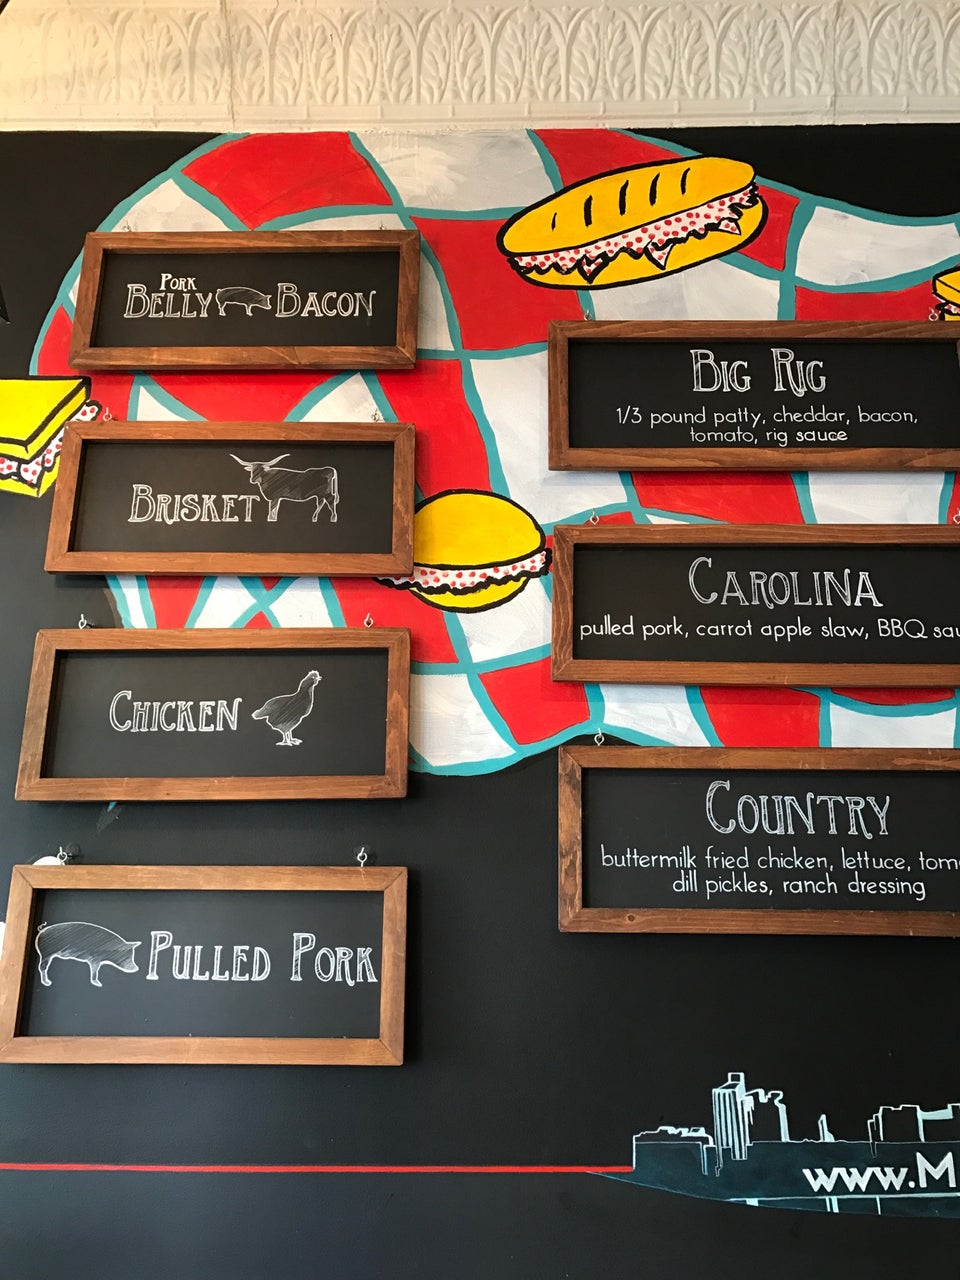 Pork
Belly Bacon
Brisket
Chicken
Pulled Pork
Big Rig
1/3 pound patty, cheddar, bacon,
tomato, rig sauce
Carolina
pulled pork, carrot apple slaw, BBQ
Country
buttermilk fried chicken, lettuce,
dill pickles, ranch dressing
www.M